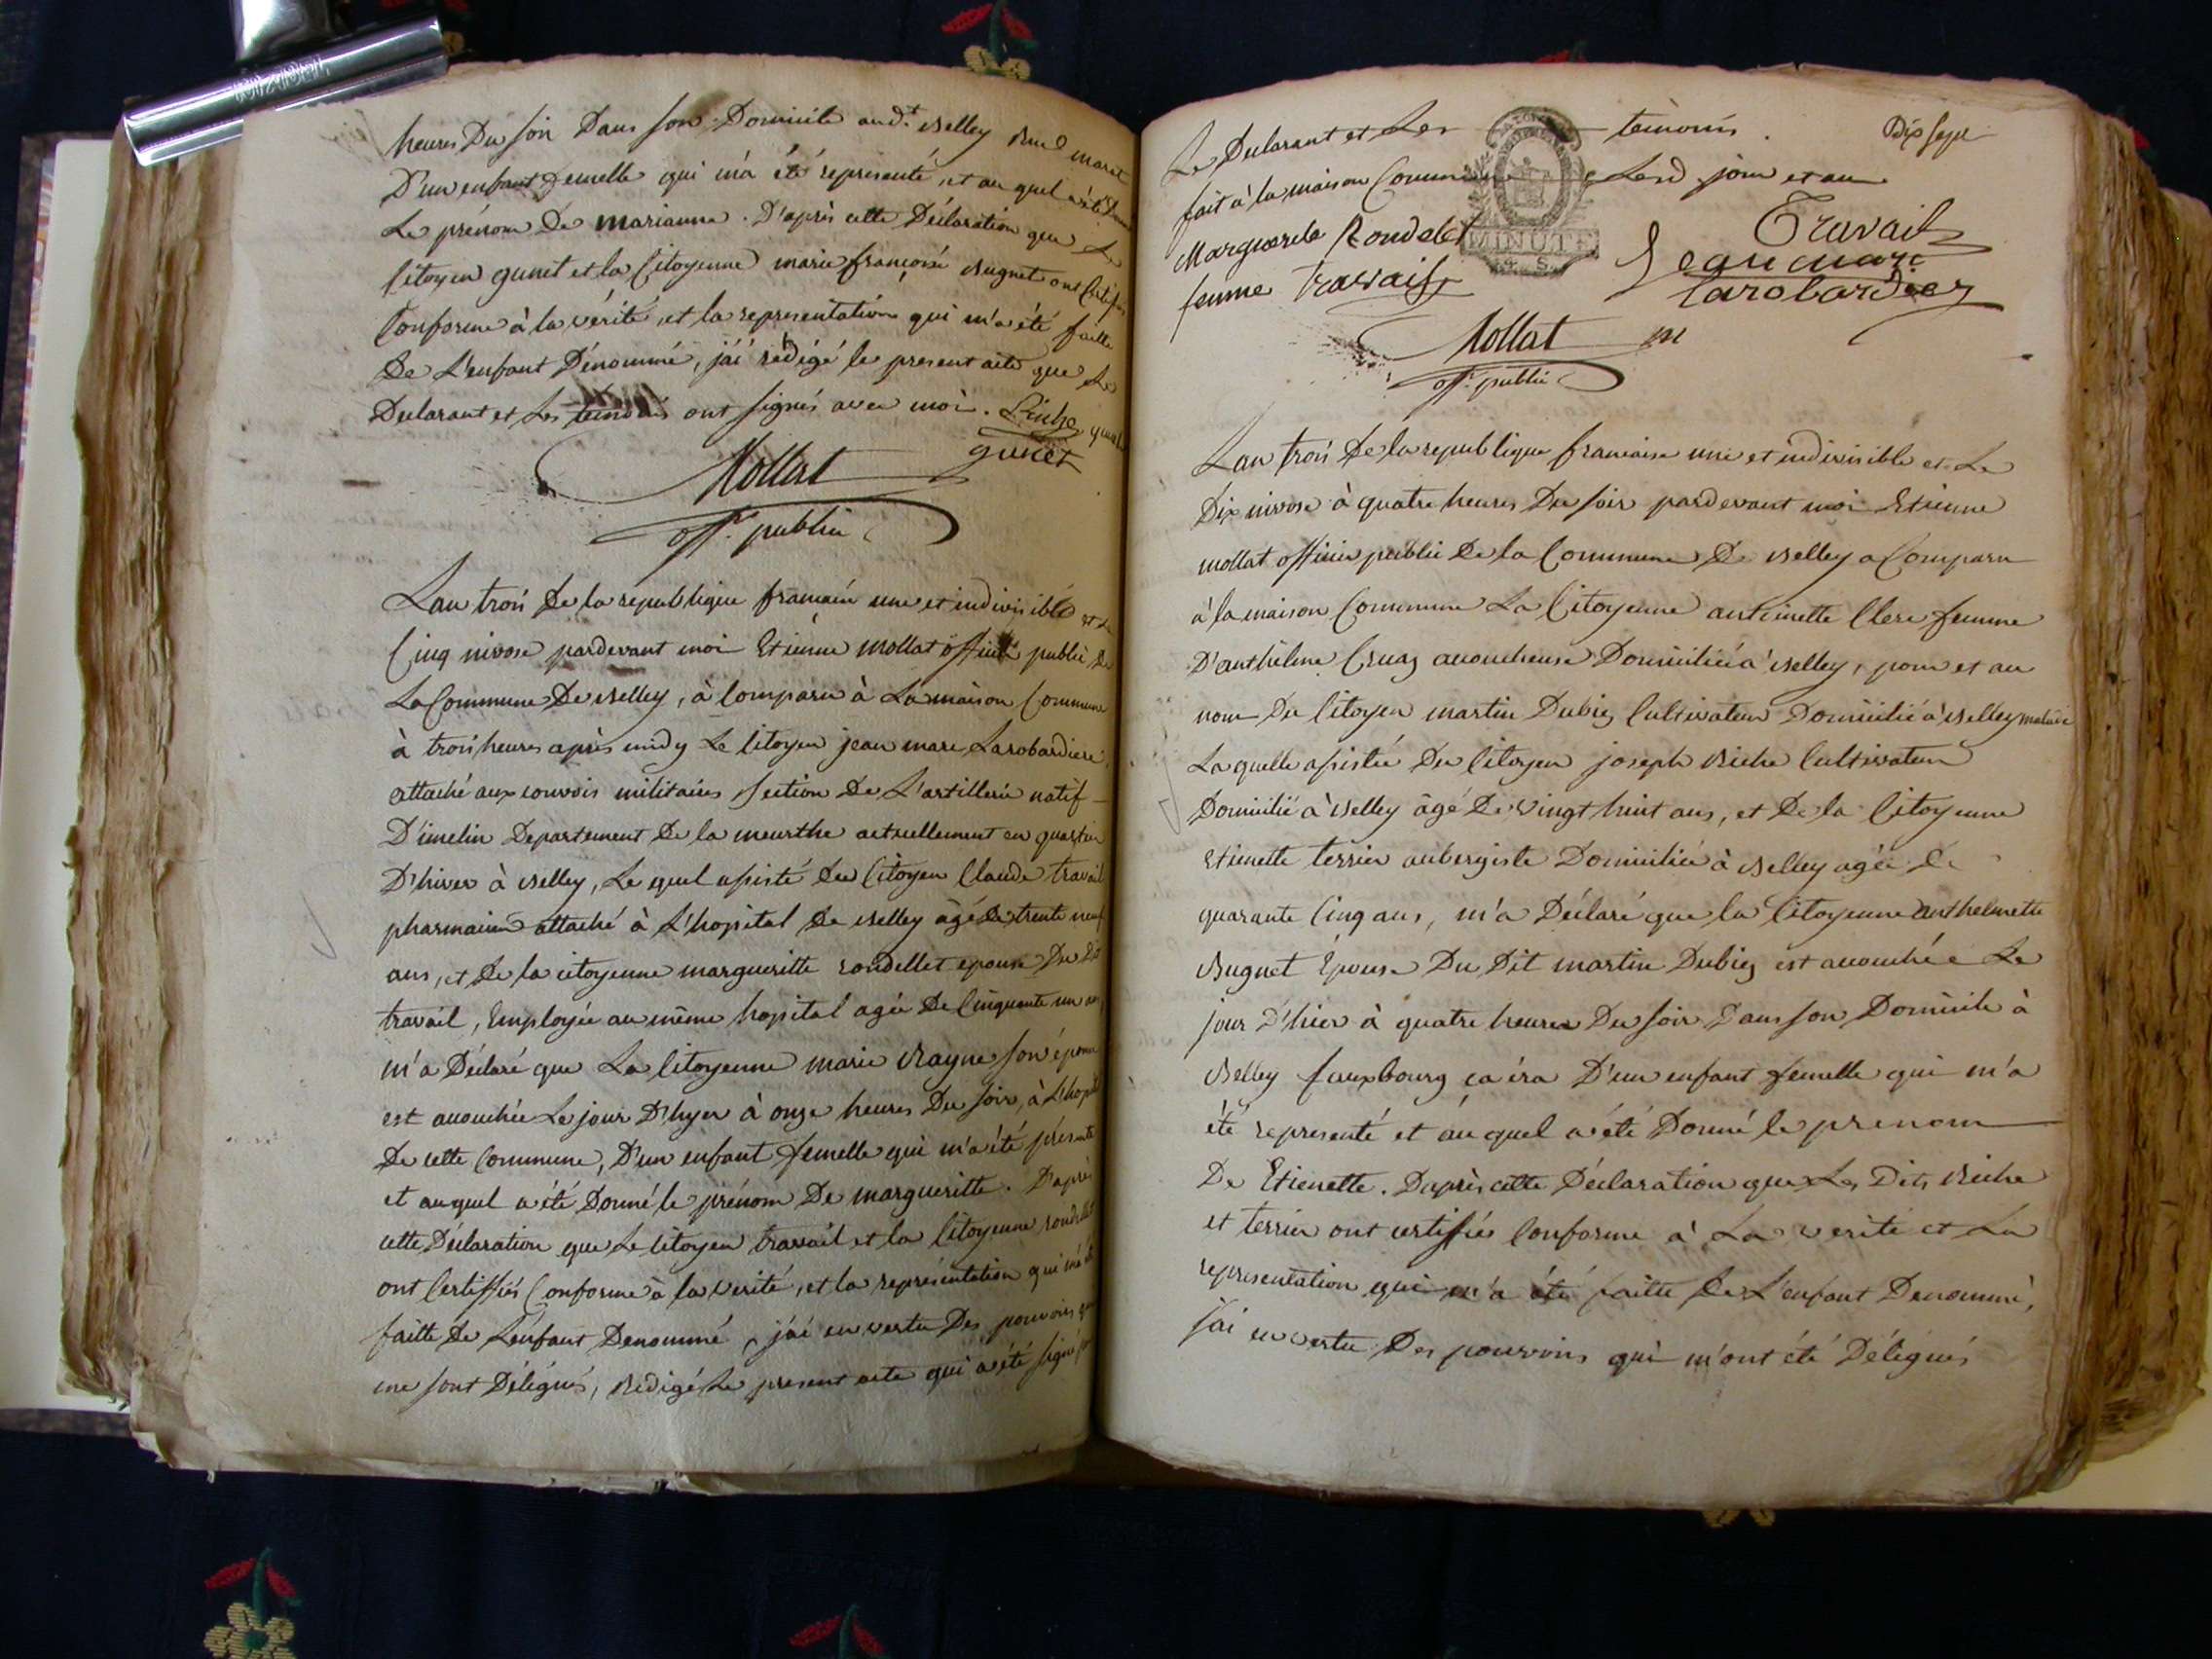 heures Du soir Dans son Domicile aud.t Belley Rue marat
D'un enfant femelle qui m'a été representé, et au quel a été Donné
Le prénom De marianne. D'après cette Déclaration que Le
Citoyen gunet et la Citoyenne marie françoise Bugnet ont Certifiés
Conforme à la vérité, et la representation qui m'a été faitte
De L'enfant Dénommé, j'ai rédigé le present acte que Le
Declarant et Les temoins ont signés avec moi.
gunet
Mollat
off. public
Lan trois De la republique francaise une et indivisible et Le
Cinq nivose pardevant moi Etienne Mollat officier public De
La Commune De Belley, à Comparu à La maison Commune
à trois heures après midy Le Citoyen jean marc Larobardiere
attaché aux convois militaires section De L'artillerie natif
D'imelin Departement De la meurthe actuellement en quartier
D'hiver à Belley, Le quel assisté Du Citoyen Claude travail
pharmacien attaché à L'hopital De Belley âgé De trente neuf
ans, et De la citoyenne margueritte rondellet epouse Du Dit
travail, Employée au même hopital agée De Cinquante un ans
m'a Déclaré que La Citoyenne marie Rayne son épouse
est accouchée Le jour D'hyer à onze heures Du soir, à L'hopital
De cette Commune, D'un enfant femelle qui m'a été présenté
et auquel a été Donné le prénom De margueritte. D'après
cette Déclaration que Le Citoyen travail et la Citoyenne rondellet
ont Certiffiés Conforme à la verité, et la représentation qui m'a été
faitte De L'enfant Denommé, j'ai en vertu Des pouvoirs qui
me sont Délégués, Rédigé Le present acte qui a été signé par
Dix sept
Le Declarant et Les temoins.
fait à la maison Commune Lesd jour et an
Marguerite Rondelet
femme travail
Travail
Jean marc
Larobardier
Mollat
off. public
MINUTE
Lan trois De la republique francaise une et indivisible et Le
Dix nivose à quatre heures Du soir pardevant moi Etienne
mollat officier public De la Commune De Belley a Comparu
à la maison Commune La Citoyenne antoinette Clerc femme
D'anthelme Cruaz accoucheuse Domiciliée à Belley, pour et au
nom Du Citoyen martin Dubiez Cultivateur Domicilié à Belley malade
La quelle assistée Du Citoyen joseph Riche Cultivateur
Domicilié à Belley âgé De vingt huit ans, et De la Citoyenne
Etienette terrier aubergiste Domiciliée à Belley agée De
quarante Cinq ans, m'a Déclaré que la Citoyenne anthelmette
Bugnet Epouse Du Dit martin Dubiez est accouchée Le
jour D'hier à quatre heures Du soir Dans son Domicile à
Belley fauxbourg ça ira D'un enfant femelle qui m'a
été representé et au quel a été Donné le prenom
De Etienette. Daprès cette Déclaration que Les Dits Riche
et terrier ont certiffiés Conforme à La verité et La
representation qui m'a été faitte De L'enfant Denommé,
j'ai en vertu Des pouvoirs qui m'ont été Délégués